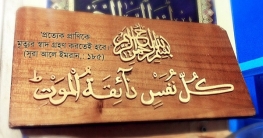 প্রত্যেক প্রাণিকে
মৃত্যুর স্বাদ গ্রহণ করতেই হবে।
(সুরা আলে ইমরান, ১৮৫)
بسم الله الرحمن الرحيم
كُلُّ نَفْسٍ ذَائِقَةُ الْمَوْتِ